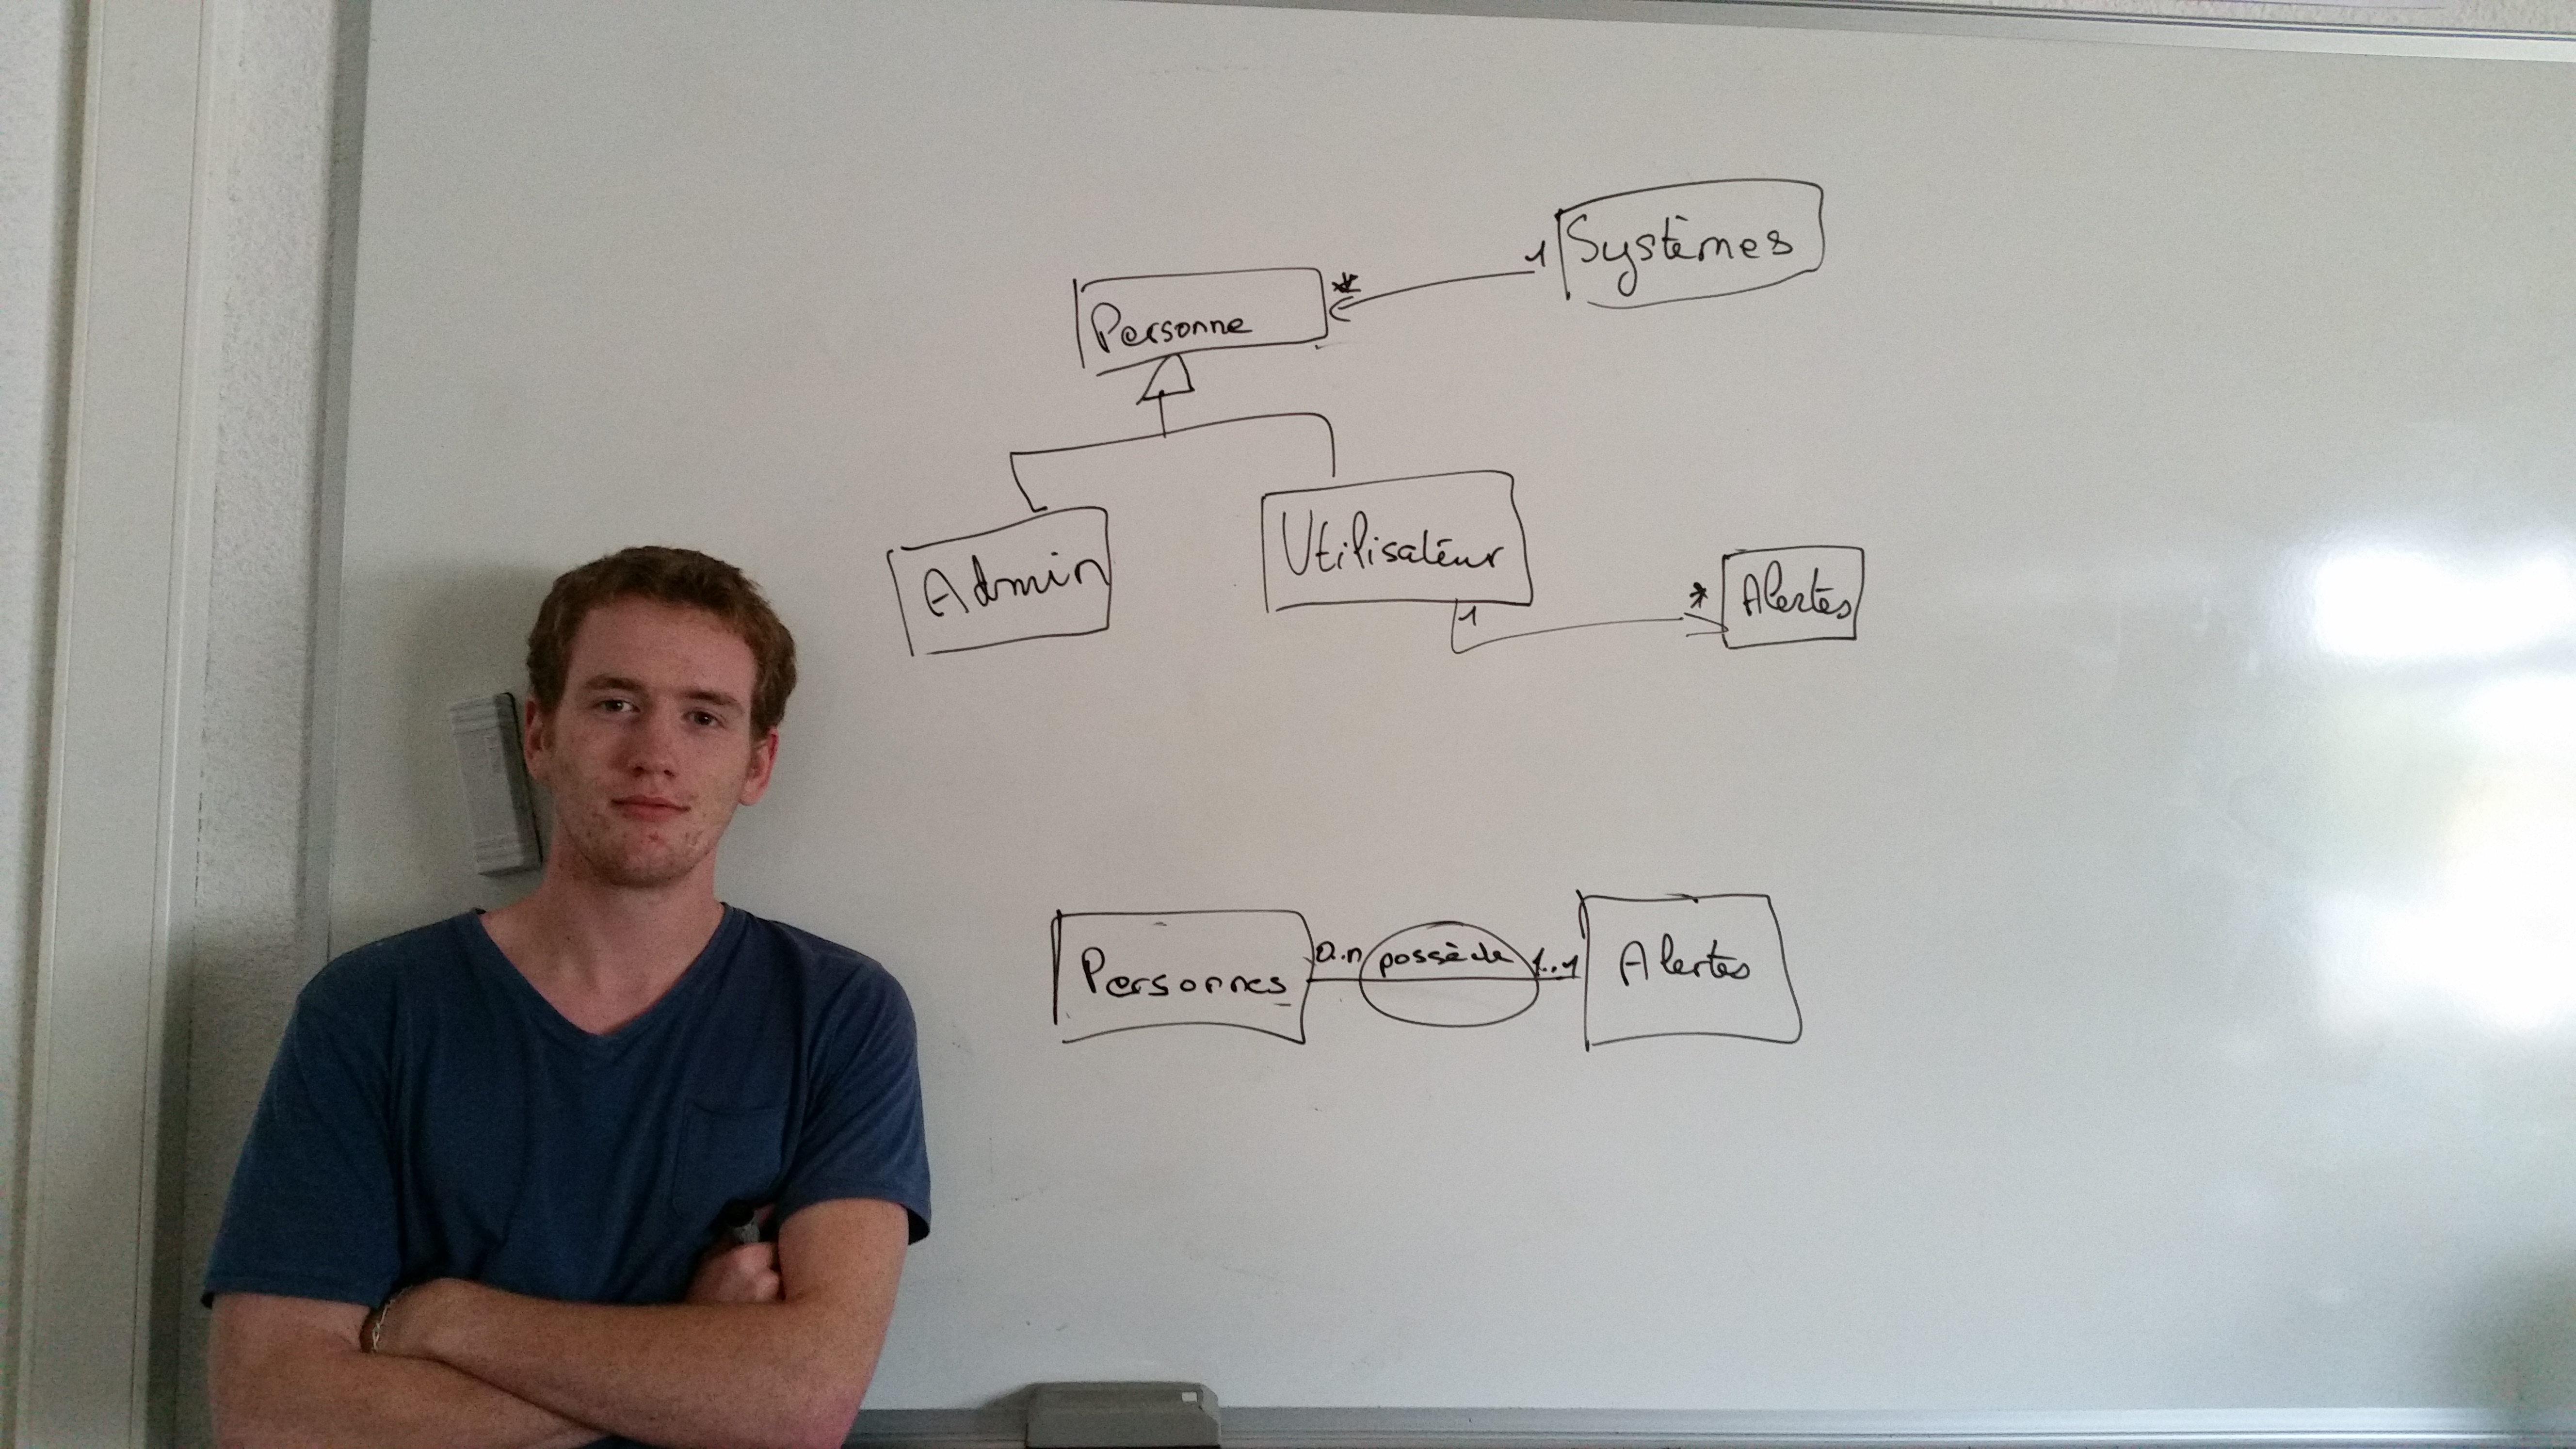 Systèmes
1
*
Personne
Admin
Utilisateur
1
*
Alertes
Personnes
0..n
possède
1..1
Alertes